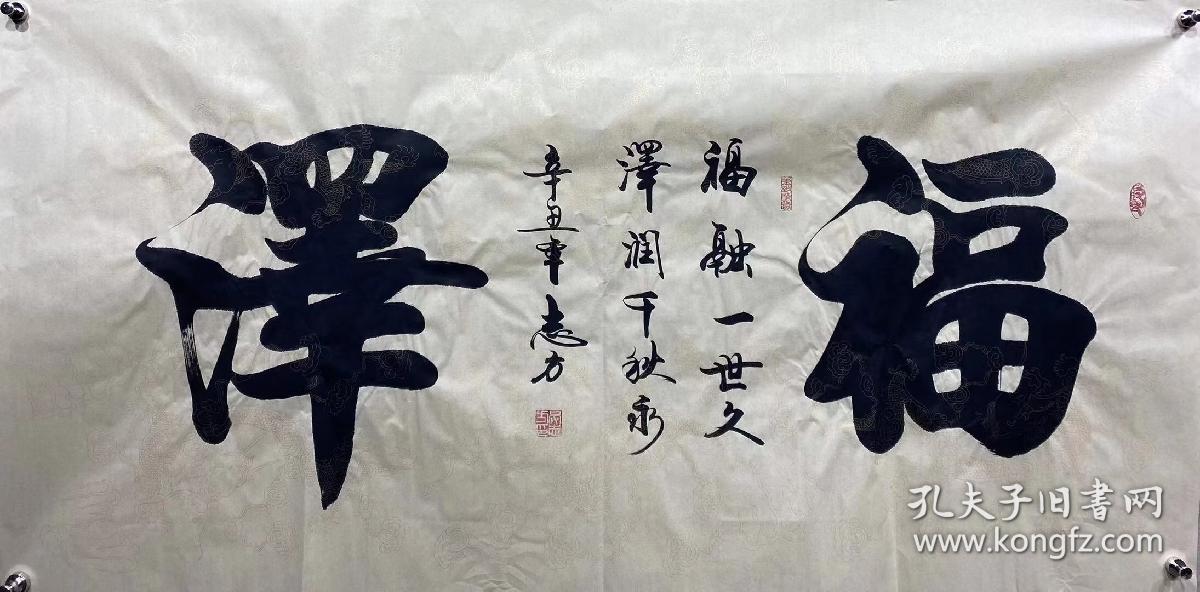 福
福融一世久
澤潤千秋永
辛丑年志方
澤
孔夫子旧书网
www.kongfz.com